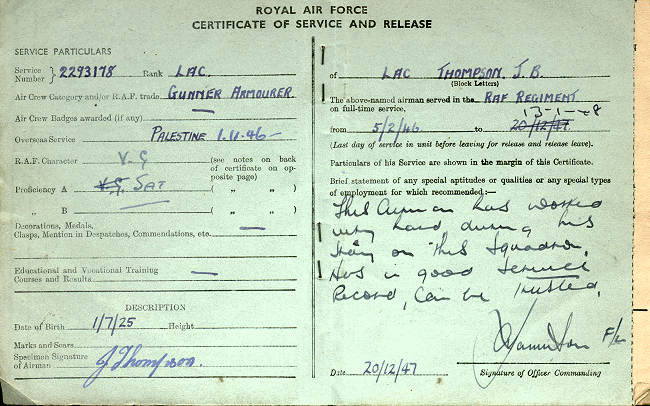 ROYAL AIR FORCE
CERTIFICATE OF SERVICE AND RELEASE
SERVICE PARTICULARS
Service Number 2293178 Rank LAC.
Air Crew Category and/or R.A.F. trade GUNNER ARMOURER
Air Crew Badges awarded (if any) —
Overseas Service PALESTINE 1.11.46—
R.A.F. Character V.G (see notes on back of certificate on opposite page)
Proficiency A V.G. SAT ( „ „ )
„ B ( „ „ )
Decorations, Medals,
Clasps, Mention in Despatches, Commendations, etc. —
Educational and Vocational Training
Courses and Results —
DESCRIPTION
Date of Birth 1/7/25 Height
Marks and Scars
Specimen Signature
of Airman J Thompson
of LAC THOMPSON J.B.
(Block Letters)
The above-named airman served in the RAF REGIMENT
on full-time service.
13-1-48
from 5/2/46 to 20/12/47
(Last day of service in unit before leaving for release and release leave).
Particulars of his Service are shown in the margin of this Certificate.
Brief statement of any special aptitudes or qualities or any special types
of employment for which recommended:—
This Airman has worked
very hard during his
stay on this Squadron.
Has a good service
Record, Can be trusted.
F/L
Date 20/12/47 Signature of Officer Commanding